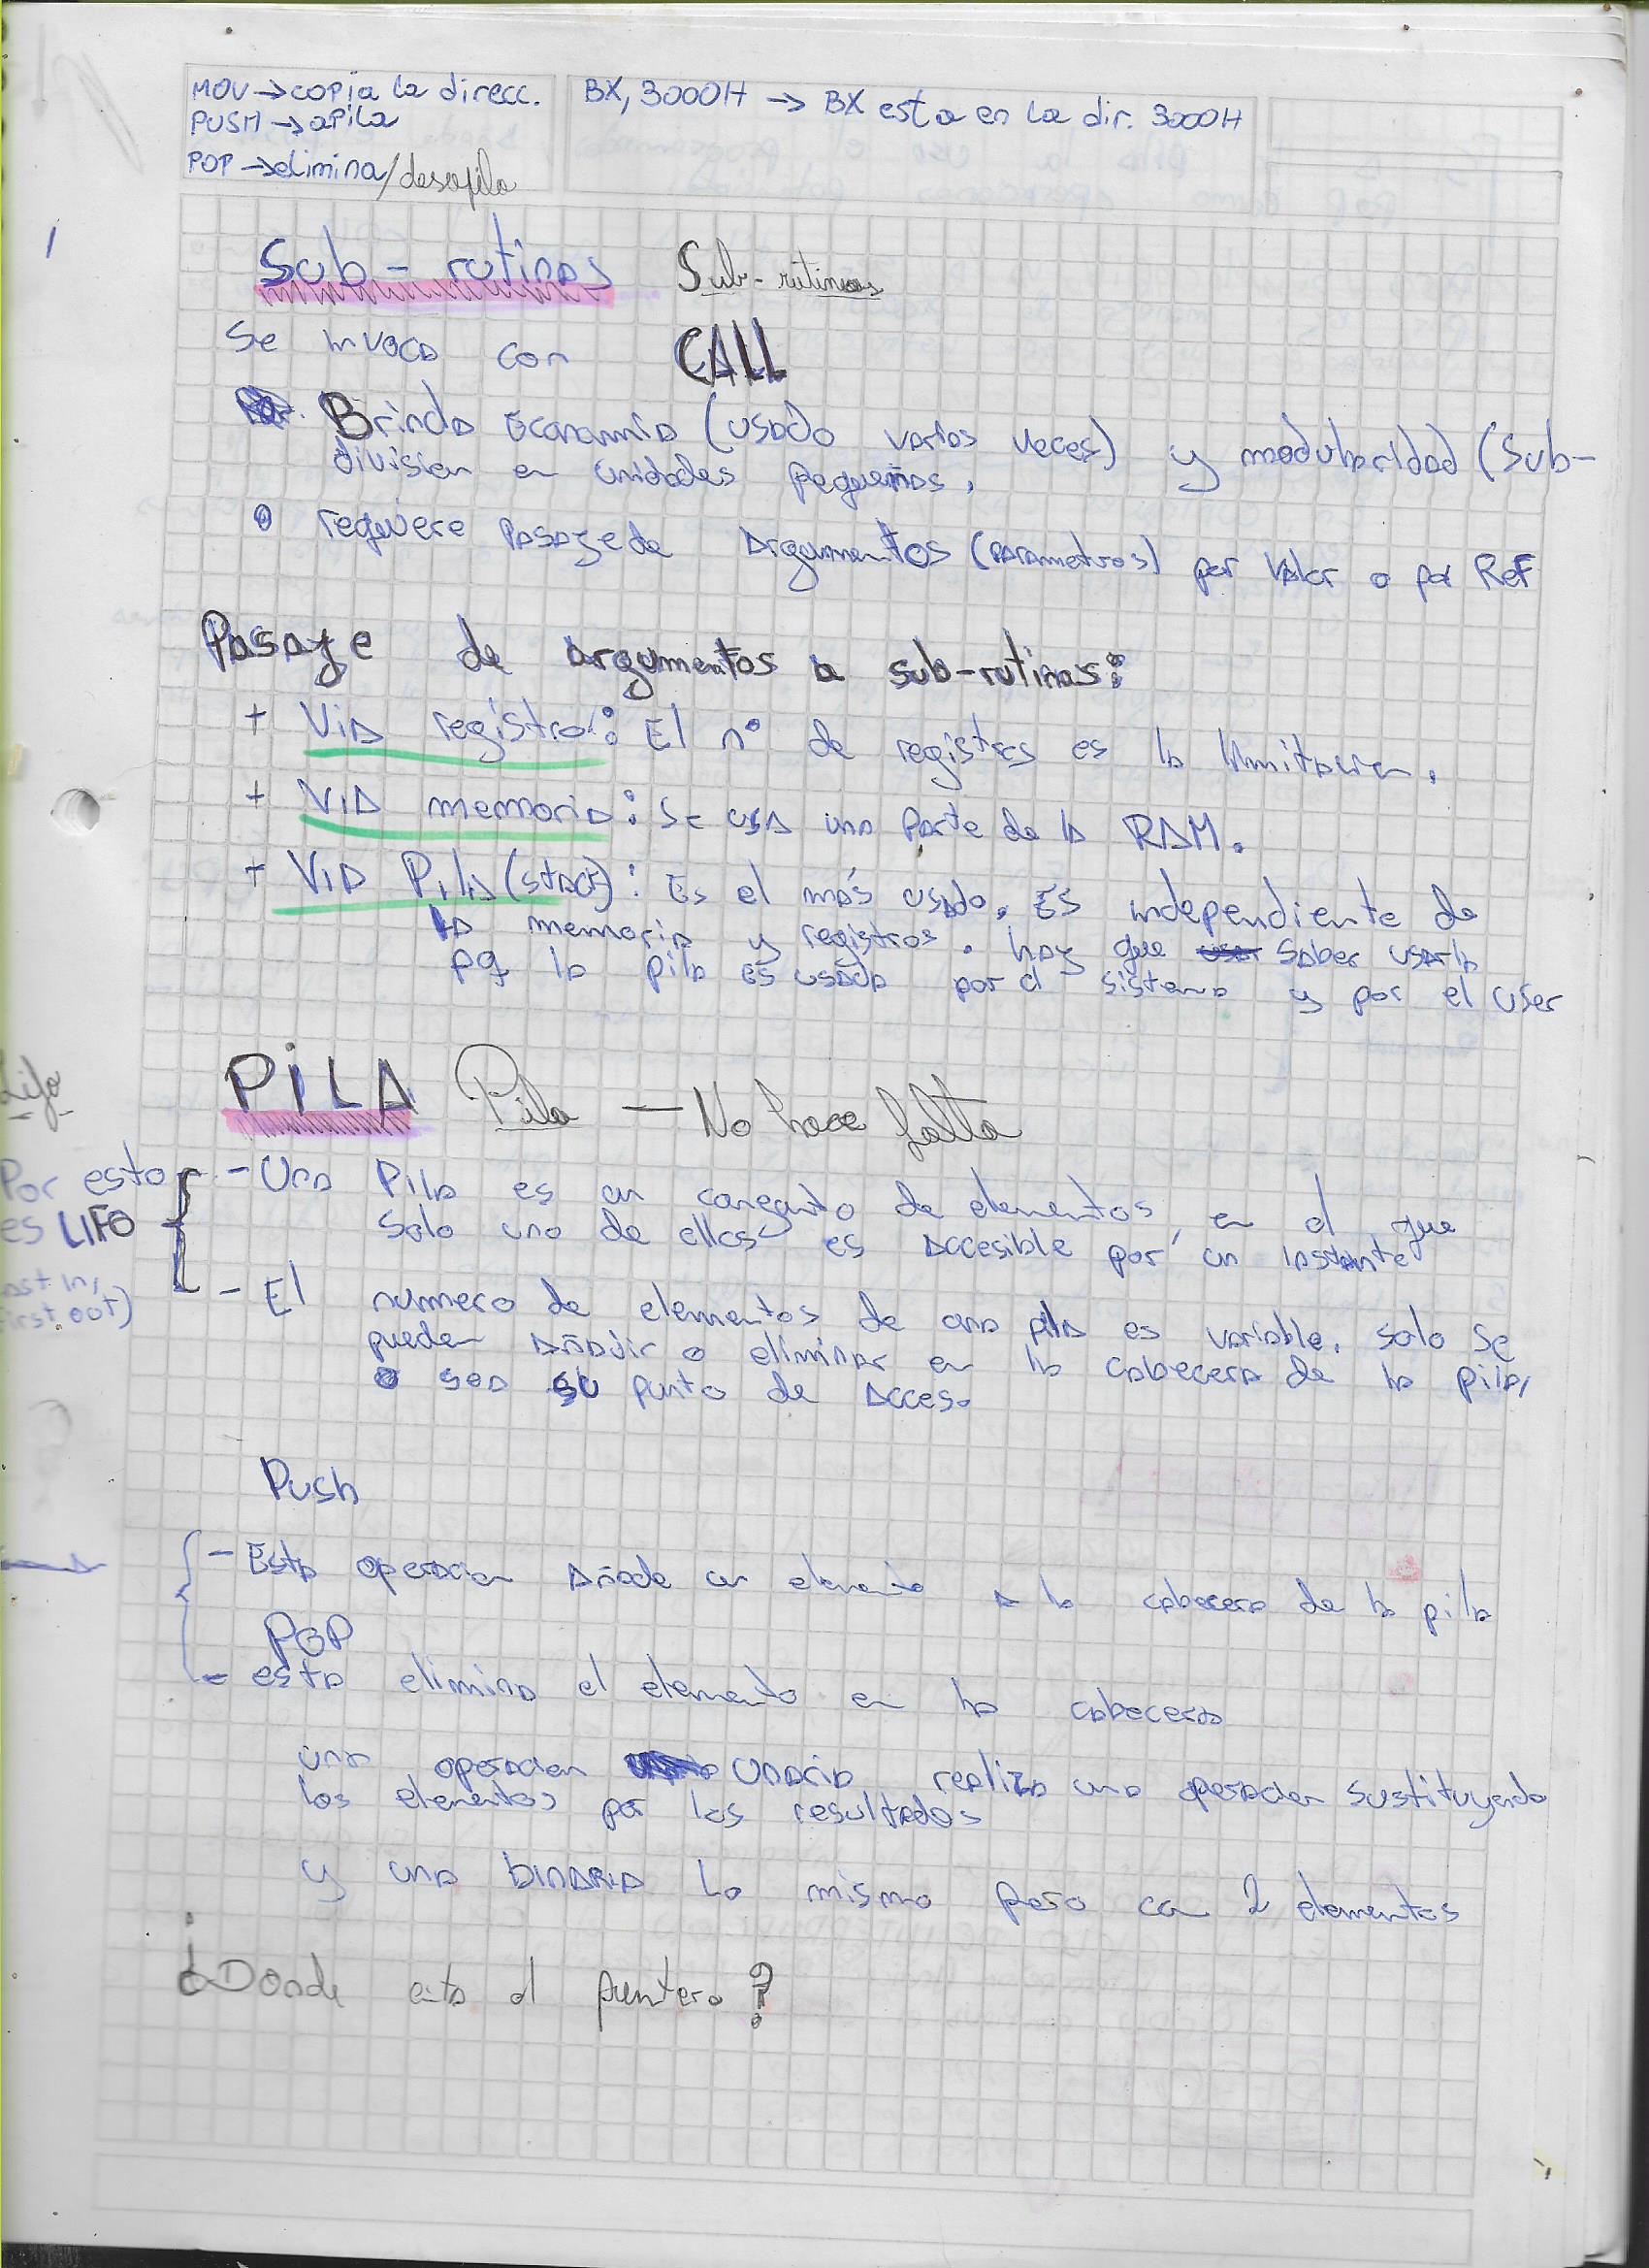 MOV → copia la direcc.
BX, 3000H → BX esta en la dir. 3000H
PUSH → apila
POP → elimina/desapila
1
Sub-rutinas Sub-rutinas
Se invoca con CALL
Brinda Economia (usado varias veces) y modularidad (Sub-
division en unidades pequeñas,
• requiere Pasaje de Argumentos (parametros) por Valor o por Ref
Pasaje de argumentos a sub-rutinas:
+ Via registro: El n° de registros es la limitacion.
+ Via memoria: Se usa una parte de la RAM.
+ Via Pila (stack): Es el más usado. Es independiente de
la memoria y registros. hay que saber usarla
pq la pila es usada por el sistema y por el user
Lifo
PILA Pila — No hace falta
Por esto
es LIFO
- Una Pila es un conjunto de elementos, en el que
Solo uno de ellos es accesible por un instante
- El numero de elementos de una pila es variable. solo se
pueden añadir o eliminar en la cabecera de la pila,
o sea su punto de acceso
Push
- Esta operacion añade un elemento a la cabecera de la pila
POP
- esta elimina el elemento en la cabecera
una operacion unaria realiza una operacion sustituyendo
los elementos por los resultados
y una binaria lo mismo pero con 2 elementos
¿Donde esta el puntero?